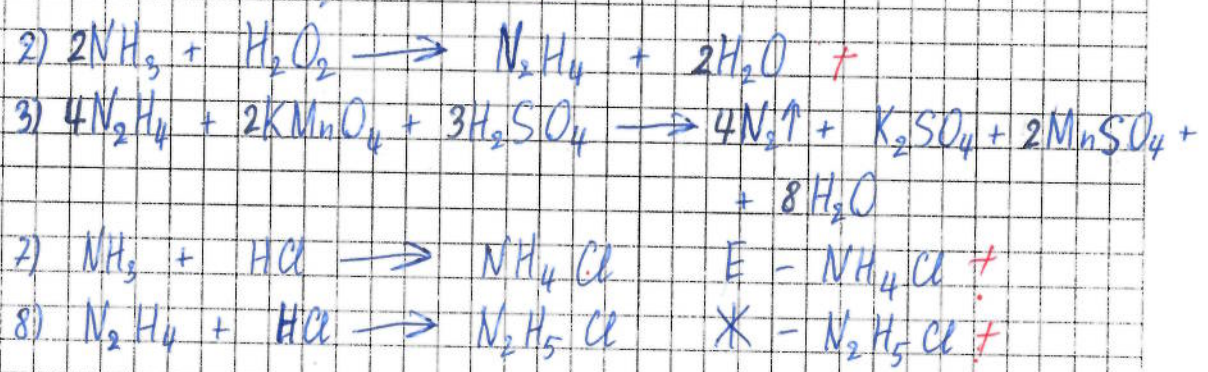 2) 2NH₃ + H₂O₂ → N₂H₄ + 2H₂O +
3) 4N₂H₄ + 2KMnO₄ + 3H₂SO₄ → 4N₂↑ + K₂SO₄ + 2MnSO₄ +
+ 8H₂O
7) NH₃ + HCl → NH₄Cl E – NH₄Cl +
8) N₂H₄ + HCl → N₂H₅Cl Ж – N₂H₅Cl +